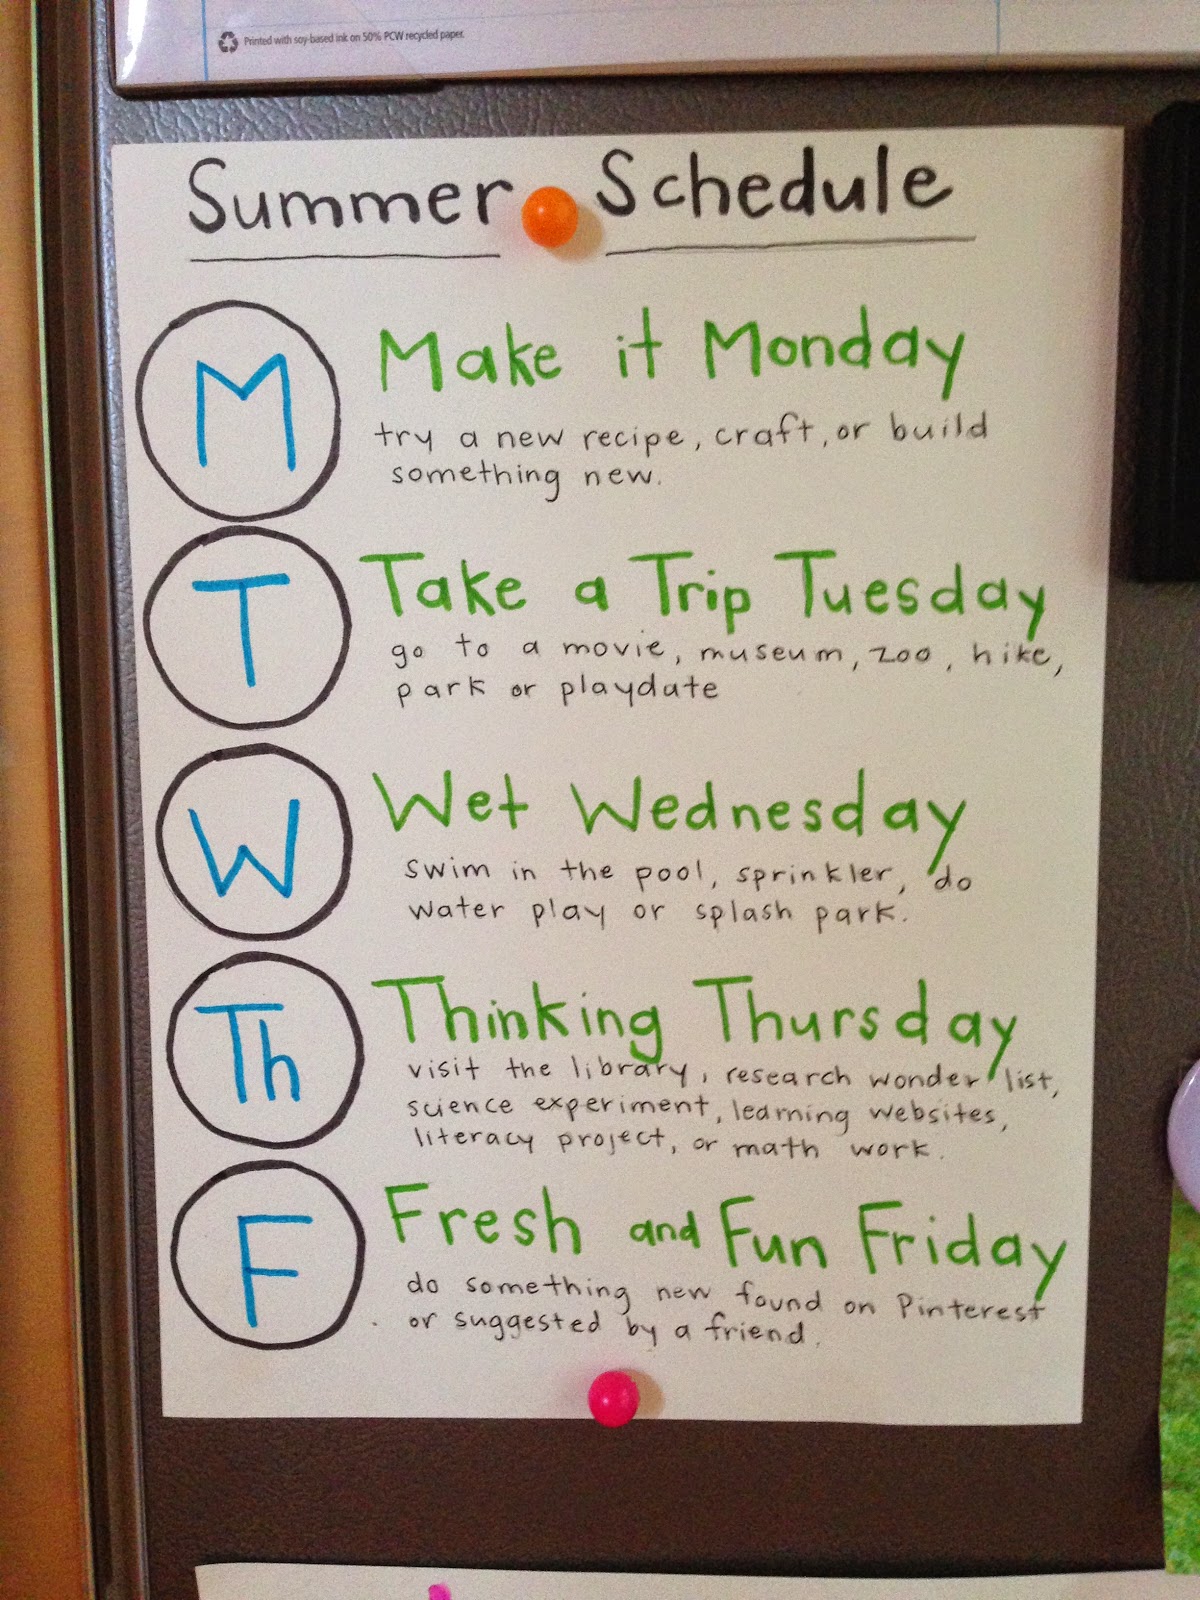 Printed with soy-based ink on 50% PCW recycled paper.
Summer Schedule
M
Make it Monday
try a new recipe, craft, or build
something new.
T
Take a Trip Tuesday
go to a movie, museum, zoo, hike,
park or playdate
W
Wet Wednesday
swim in the pool, sprinkler, do
water play or splash park.
Th
Thinking Thursday
visit the library, research wonder list,
science experiment, learning websites,
literacy project, or math work.
F
Fresh and Fun Friday
do something new found on Pinterest
or suggested by a friend.